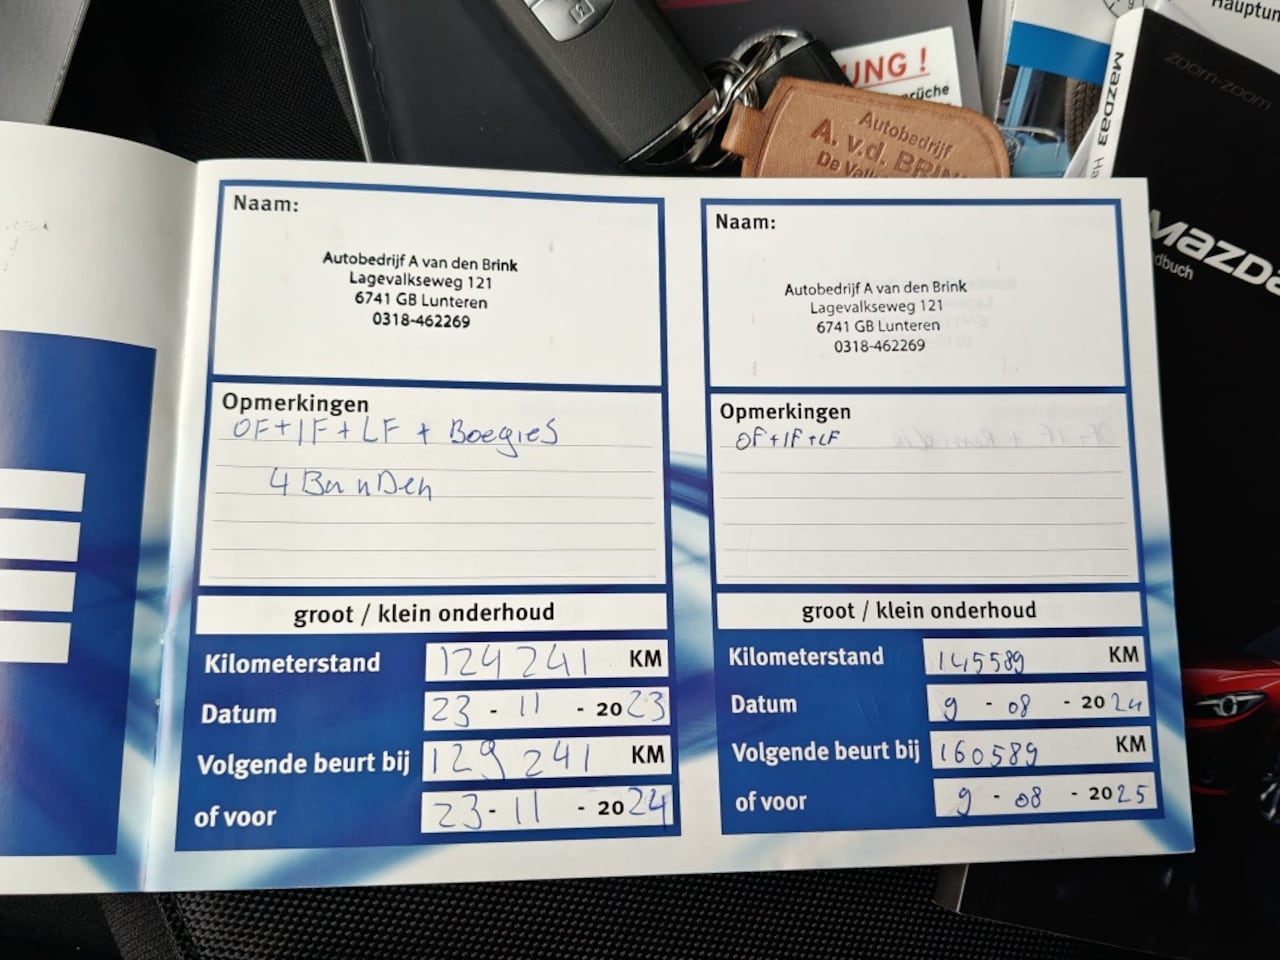 UNG !
rüche
Hauptun
zoom-zoom
mazDa3 Ha
mazDa
dbuch
Autobedrijf
A. v.d. BRINK
De Valk
Naam:
Autobedrijf A van den Brink
Lagevalkseweg 121
6741 GB Lunteren
0318-462269
Opmerkingen
OF+IF+LF + Boegies
4 Banden
groot / klein onderhoud
Kilometerstand 124241 KM
Datum 23 - 11 - 2023
Volgende beurt bij 129241 KM
of voor 23 - 11 - 2024
Naam:
Autobedrijf A van den Brink
Lagevalkseweg 121
6741 GB Lunteren
0318-462269
Opmerkingen
OF+IF+LF
groot / klein onderhoud
Kilometerstand 145589 KM
Datum 9 - 08 - 2024
Volgende beurt bij 160589 KM
of voor 9 - 08 - 2025